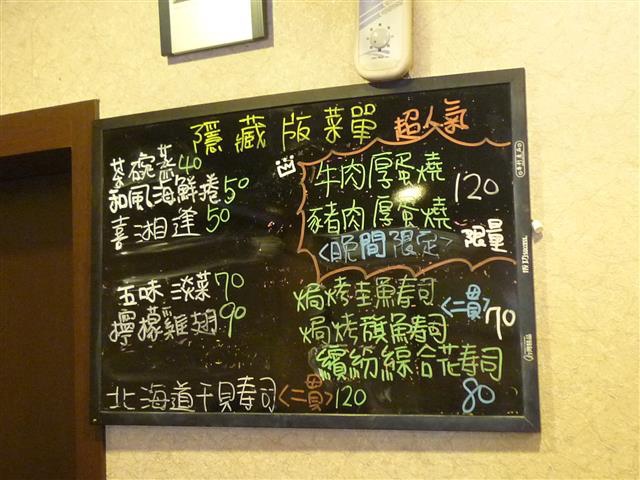 隱藏版菜單
超人氣
茶碗蒸40
和風海鮮捲50
喜湘逢50
五味淡菜70
檸檬雞翅90
北海道干貝寿司<二貫>120
牛肉厚蛋燒
豬肉厚蛋燒
120
<晚間限定>
限量
焗烤鮭魚寿司
焗烤旗魚寿司
<二貫>70
繽紛綜合花寿司
80